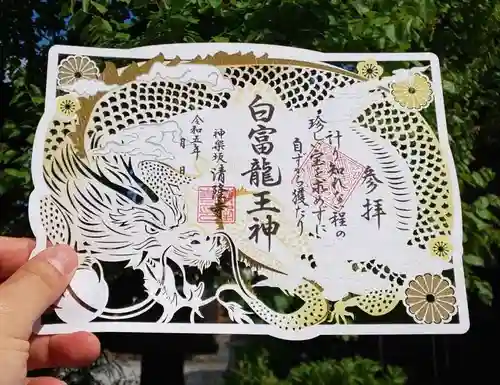 参拝
計り知れない程の
珍しい宝を求めずに
自ずから獲たり
白富龍王神
神楽坂 清隆寺
令和五年 月 日